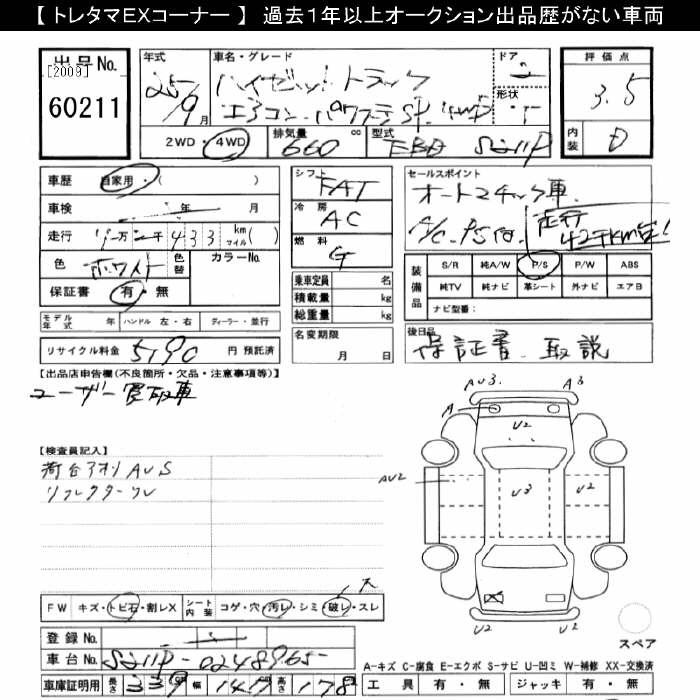 【 トレタマEXコーナー 】 過去1年以上オークション出品歴がない車両
出品No.
[2009]
60211
年式
25/9月
車名・グレード
ハイゼットトラック
エアコン・パワステSP 4WD
ドア
2
形状
評価点
3.5
内装
D
2WD・4WD
排気量
660
cc
型式
EBD S211P
車歴
自家用・( )
車検
年 月
走行
4万 2千 433 km マイル( )
色
ホワイト
色替
カラーNo.
保証書
有・無
シフト
FAT
冷房
AC
燃料
G
セールスポイント
オートマチック車
A/C・PS付
走行
42千km台!
乗車定員 名
積載量 kg
総重量 kg
装備品
S/R 純A/W P/S P/W ABS
純TV 純ナビ 革シート 外ナビ エアB
ナビ型番:
モデル年式 年 ハンドル 左・右 ディーラー・並行
リサイクル料金 5190 円 預託済
名変期限
月 日
後日品
保証書 取説
【出品店申告欄(不良箇所・欠品・注意事項等)】
ユーザー買取車
【検査員記入】
荷台アオリAUS
リフレクターワレ
AU3. A3
A
U2
AU2
U3
U2
U2 U2
スペア
FW キズ・トビ石・割レX シート内装 コゲ・穴・汚レ・シミ・破レ・スレ
大
登録No.
車台No. S211P-0248965-
車庫証明用 長さ 339 幅 147 高さ 178
A-キズ C-腐食 E-エクボ S-サビ U-凹ミ W-補修 XX-交換済
工具 有・無 ジャッキ 有・無